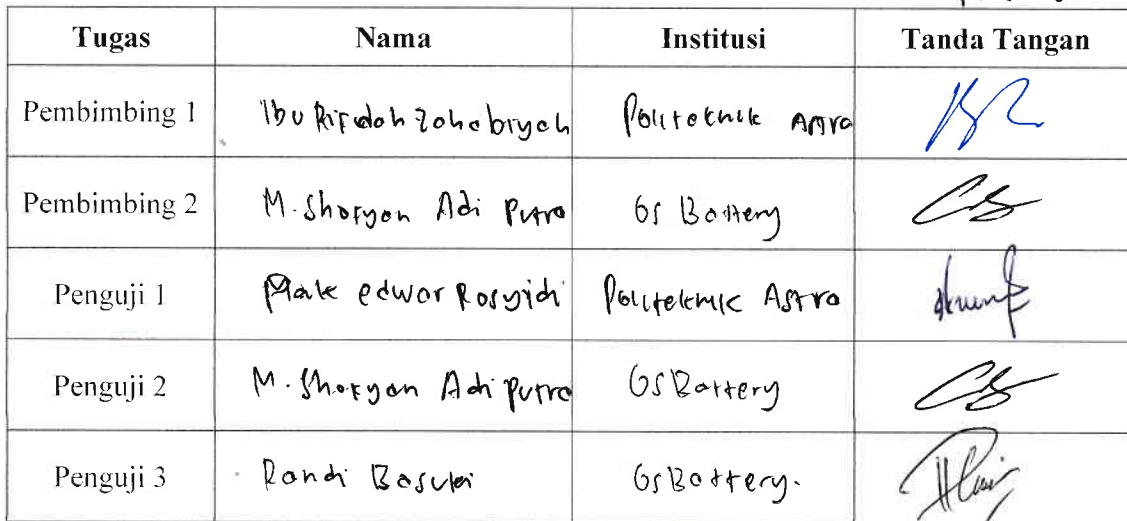 Tugas Nama Institusi Tanda Tangan
Pembimbing 1 Ibu Rifdah Zahabiyah Politeknik Astra
Pembimbing 2 M. Shofyan Adi Putra GS Battery
Penguji 1 Pak edwar Rosyidi Politeknik Astra
Penguji 2 M. Shofyan Adi putra GS Battery
Penguji 3 Randi Basuki GS Battery.